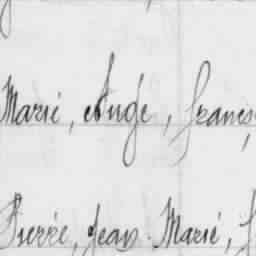 Marie, Ange, franç
Pierre, Jean-Marie, f